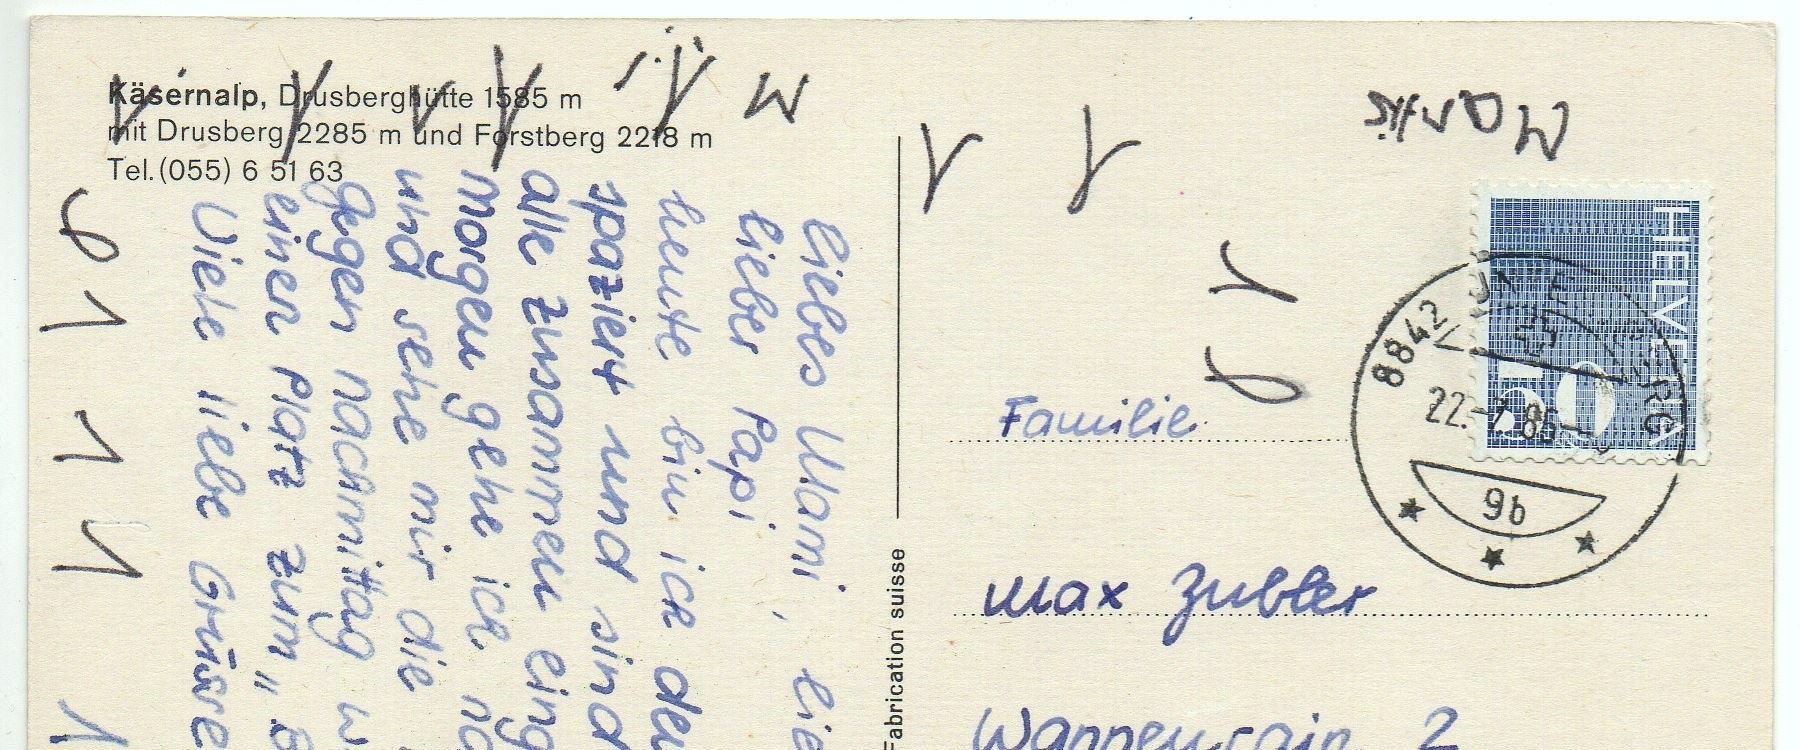 Käsernalp, Drusberghütte 1585 m
mit Drusberg 2285 m und Forstberg 2218 m
Tel. (055) 6 51 63
liebes Mami, lie
lieber Papi
heute bin ich den
spaziert und sind
alle zusammen eing
morgen gehe ich na
und sehe mir die
gegen nachmittag w
einen Platz zum „B
Viele liebe Grüsse
Fabrication suisse
Martis
HELVETIA
50
8842
22.-7.86
9b
Familie
Max Zubler
Wannenrain 2